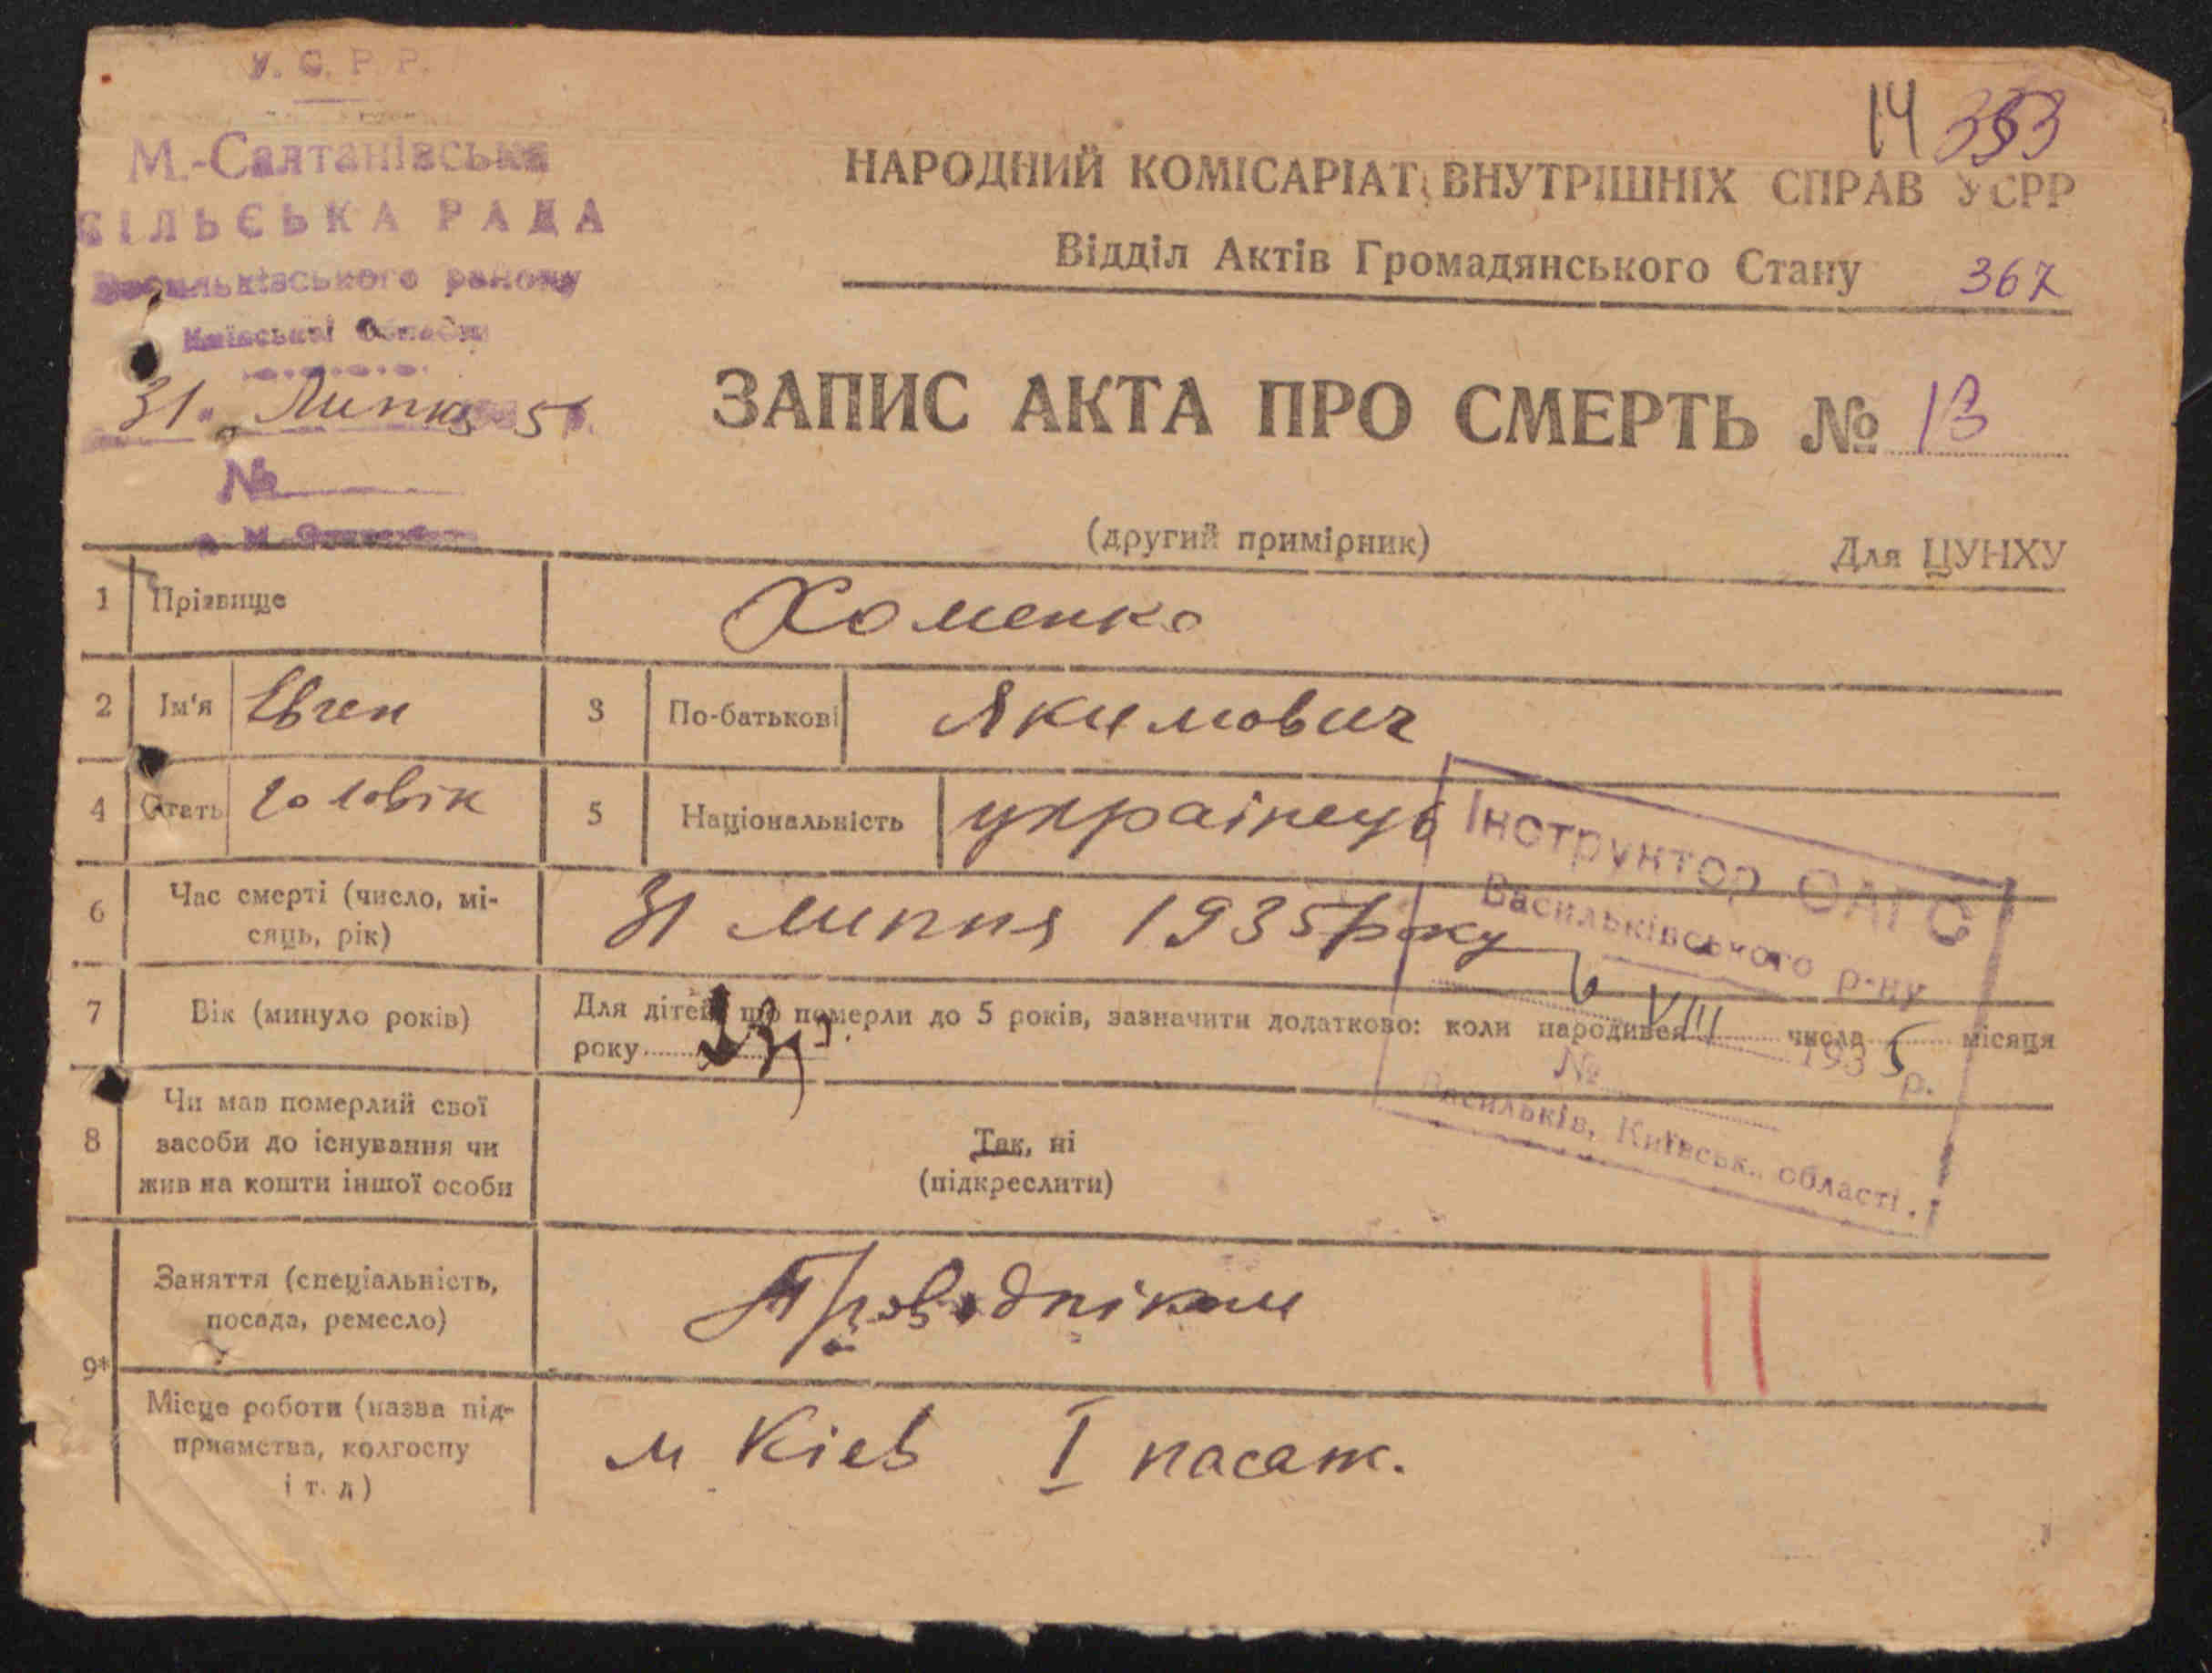 У. С. Р. Р.
М.-Салтанівська
СІЛЬСЬКА РАДА
Васильківського району
Київської Области
31. Липня 5
№
14 353
НАРОДНИЙ КОМІСАРІАТ ВНУТРІШНІХ СПРАВ УСРР
Відділ Актів Громадянського Стану 367
ЗАПИС АКТА ПРО СМЕРТЬ № 13
(другий примірник) Для ЦУНХУ
1 Прізвище Хоменко
2 Ім'я Евген 3 По-батькові Якимович
4 Стать чоловік 5 Національність українець
6 Час смерті (число, мі-
сяць, рік) 31 липня 1935 року
7 Вік (минуло років) Для дітей, що померли до 5 років, зазначити додатково: коли народився числа місяця
року
Інструктор ОАГС
Васильківського р-ну
6 VIII 1935 р.
№
Васильків, Київськ. області.
8 Чи мав померлий свої
засоби до існування чи
жив на кошти іншої особи
Так, ні
(підкреслити)
9* Заняття (спеціальність,
посада, ремесло) Проводніком
Місце роботи (назва під-
приємства, колгоспу
і т. д) м Кіев I пасаж.